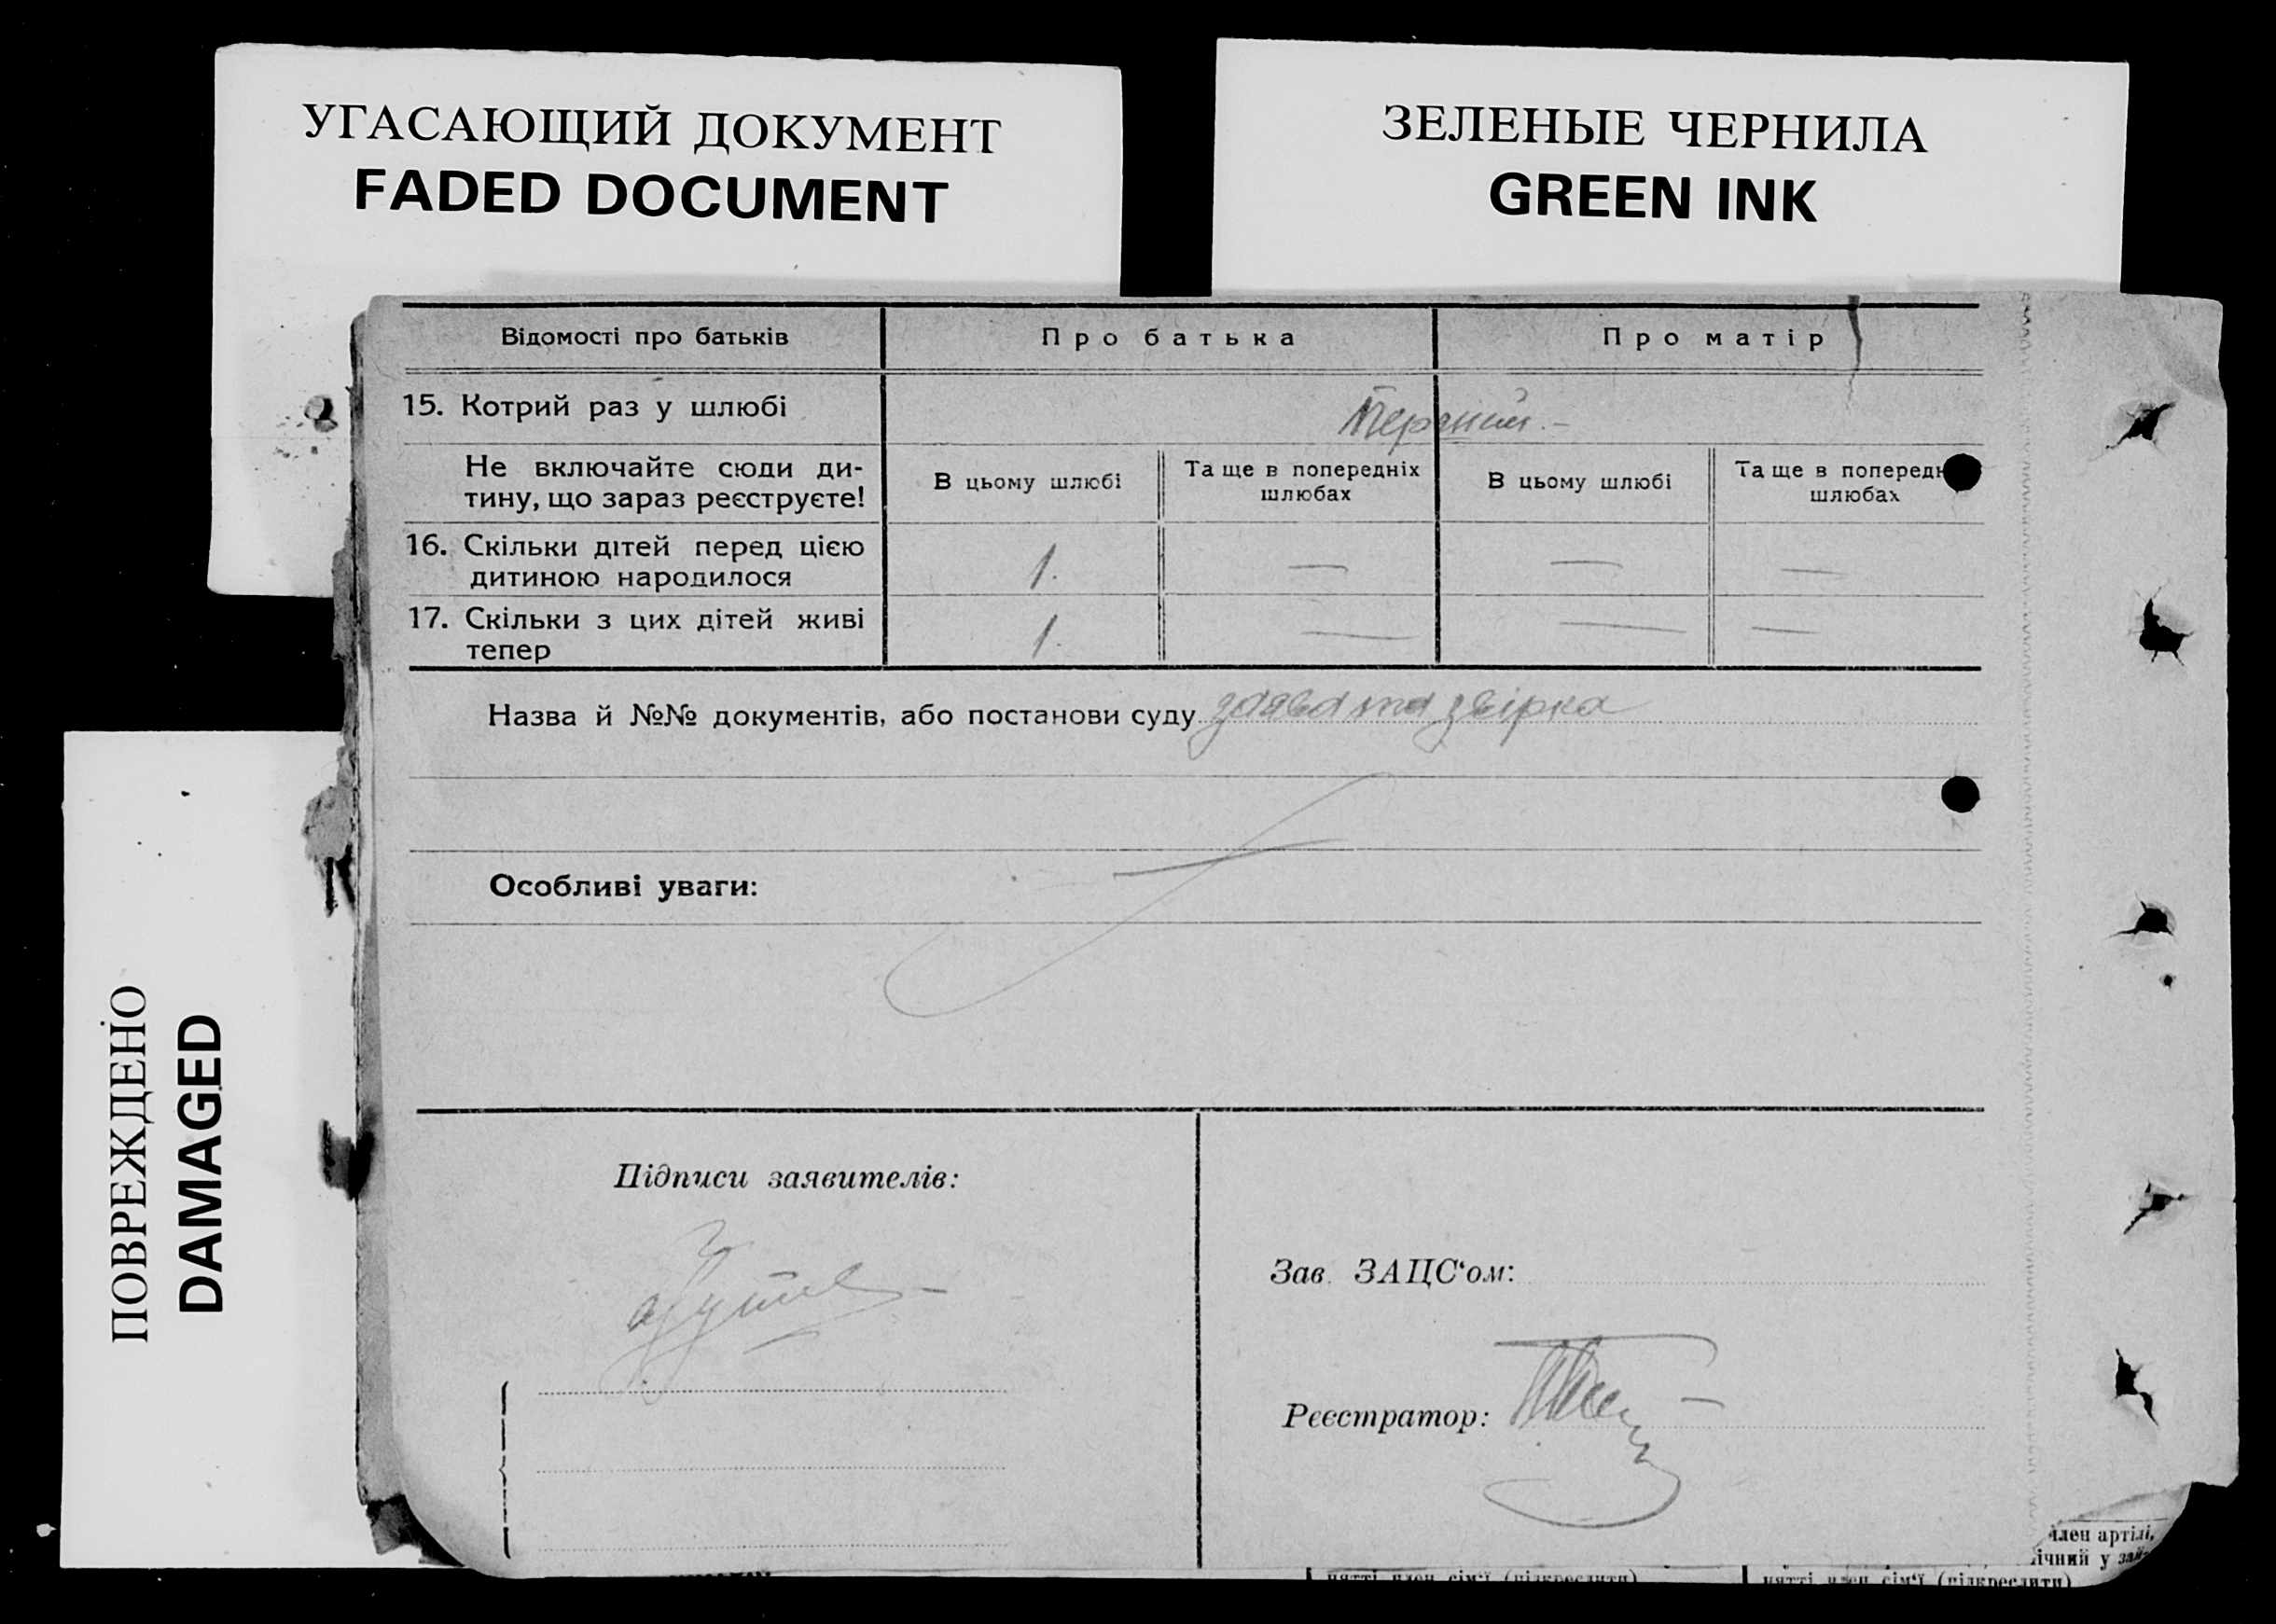 УГАСАЮЩИЙ ДОКУМЕНТ
FADED DOCUMENT
ЗЕЛЕНЫЕ ЧЕРНИЛА
GREEN INK
ПОВРЕЖДЕНО
DAMAGED
Відомості про батьків
Про батька
Про матір
15. Котрий раз у шлюбі
Не включайте сюди ди-
тину, що зараз реєструєте!
В цьому шлюбі
Та ще в попередніх
шлюбах
В цьому шлюбі
Та ще в поперед
шлюбах
16. Скільки дітей перед цією
дитиною народилося
1. — — —
17. Скільки з цих дітей живі
тепер
1. — — —
Назва й №№ документів, або постанови суду заява та звірка
Особливі уваги:
Підписи заявителів:
Зав. ЗАЦС‘ом:
Реєстратор:
член артілі,
нятті член сім‘ї (підкреслити)
нятті член сім‘ї (підкреслити)